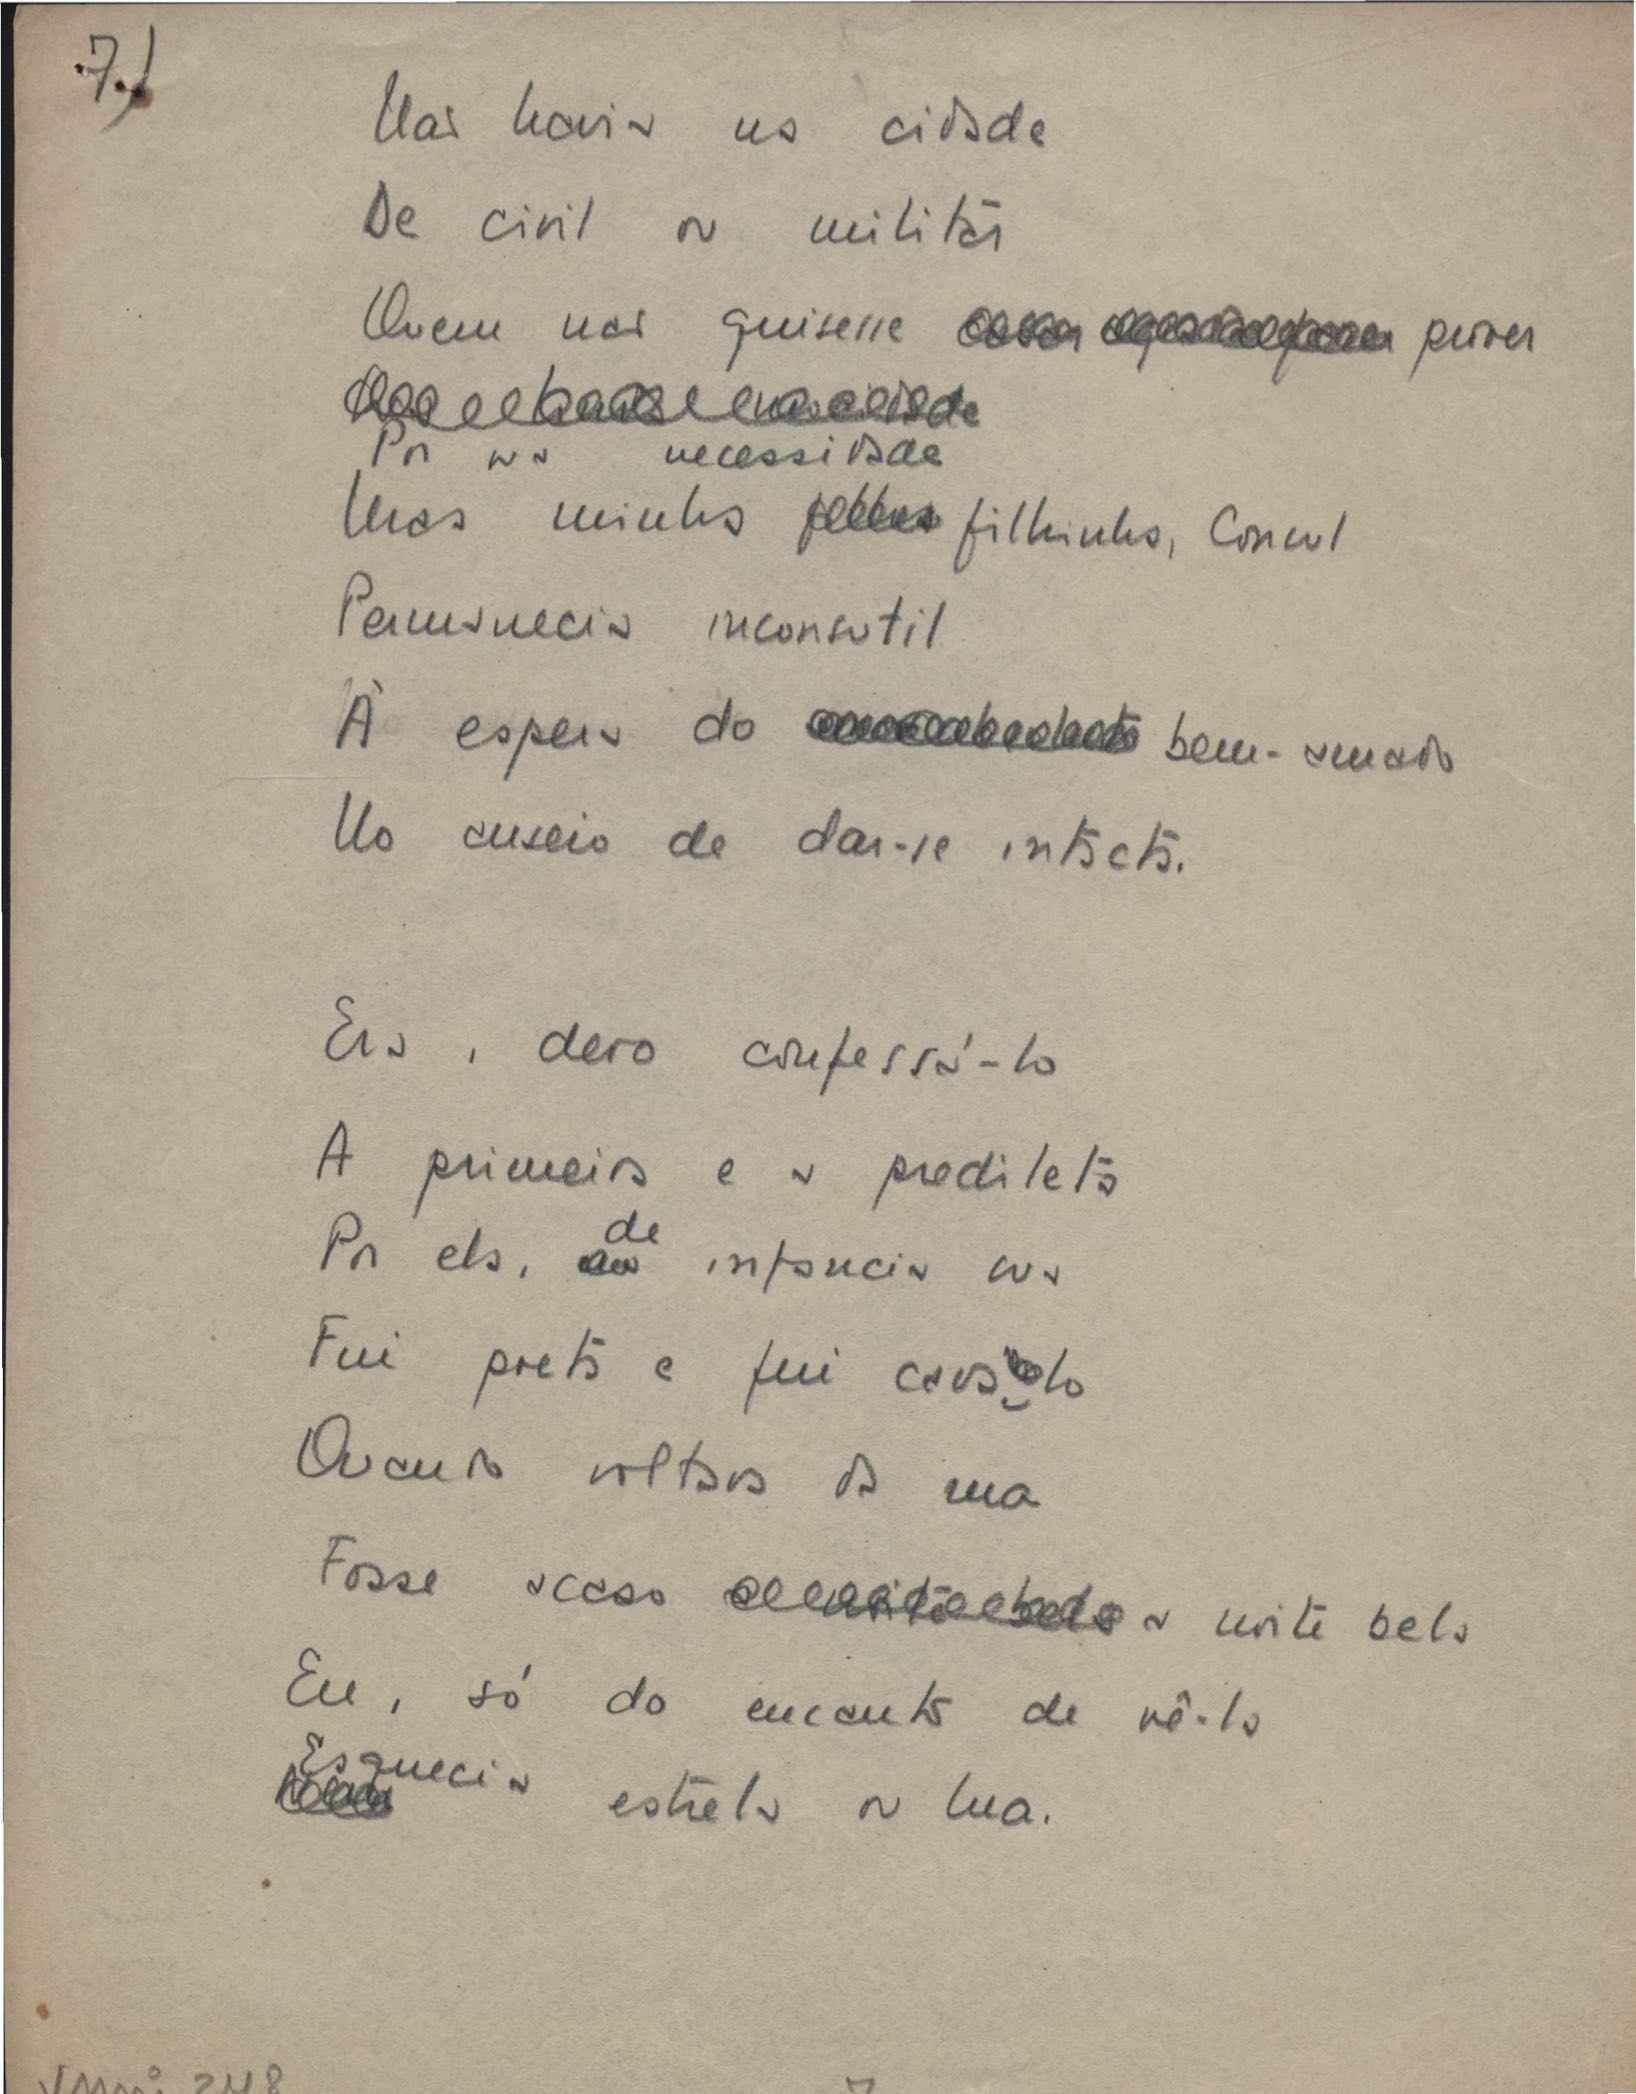 7.)
Não havia na cidade
De civil ou militar
Quem não quisesse prover
Por sua necessidade
Mas minha filhinha, Consul
Permanecia inconsutil
À espera do bem-amado
No anseio de dar-se intacta.
Era, devo confessá-lo
A primeira e a predileta
Por ela, de infancia sua
Fui poeta e fui cavalo
Quando voltava da rua
Fosse acaso a noite bela
Eu, só do encanto de vê-la
Esquecia estrela ou lua.